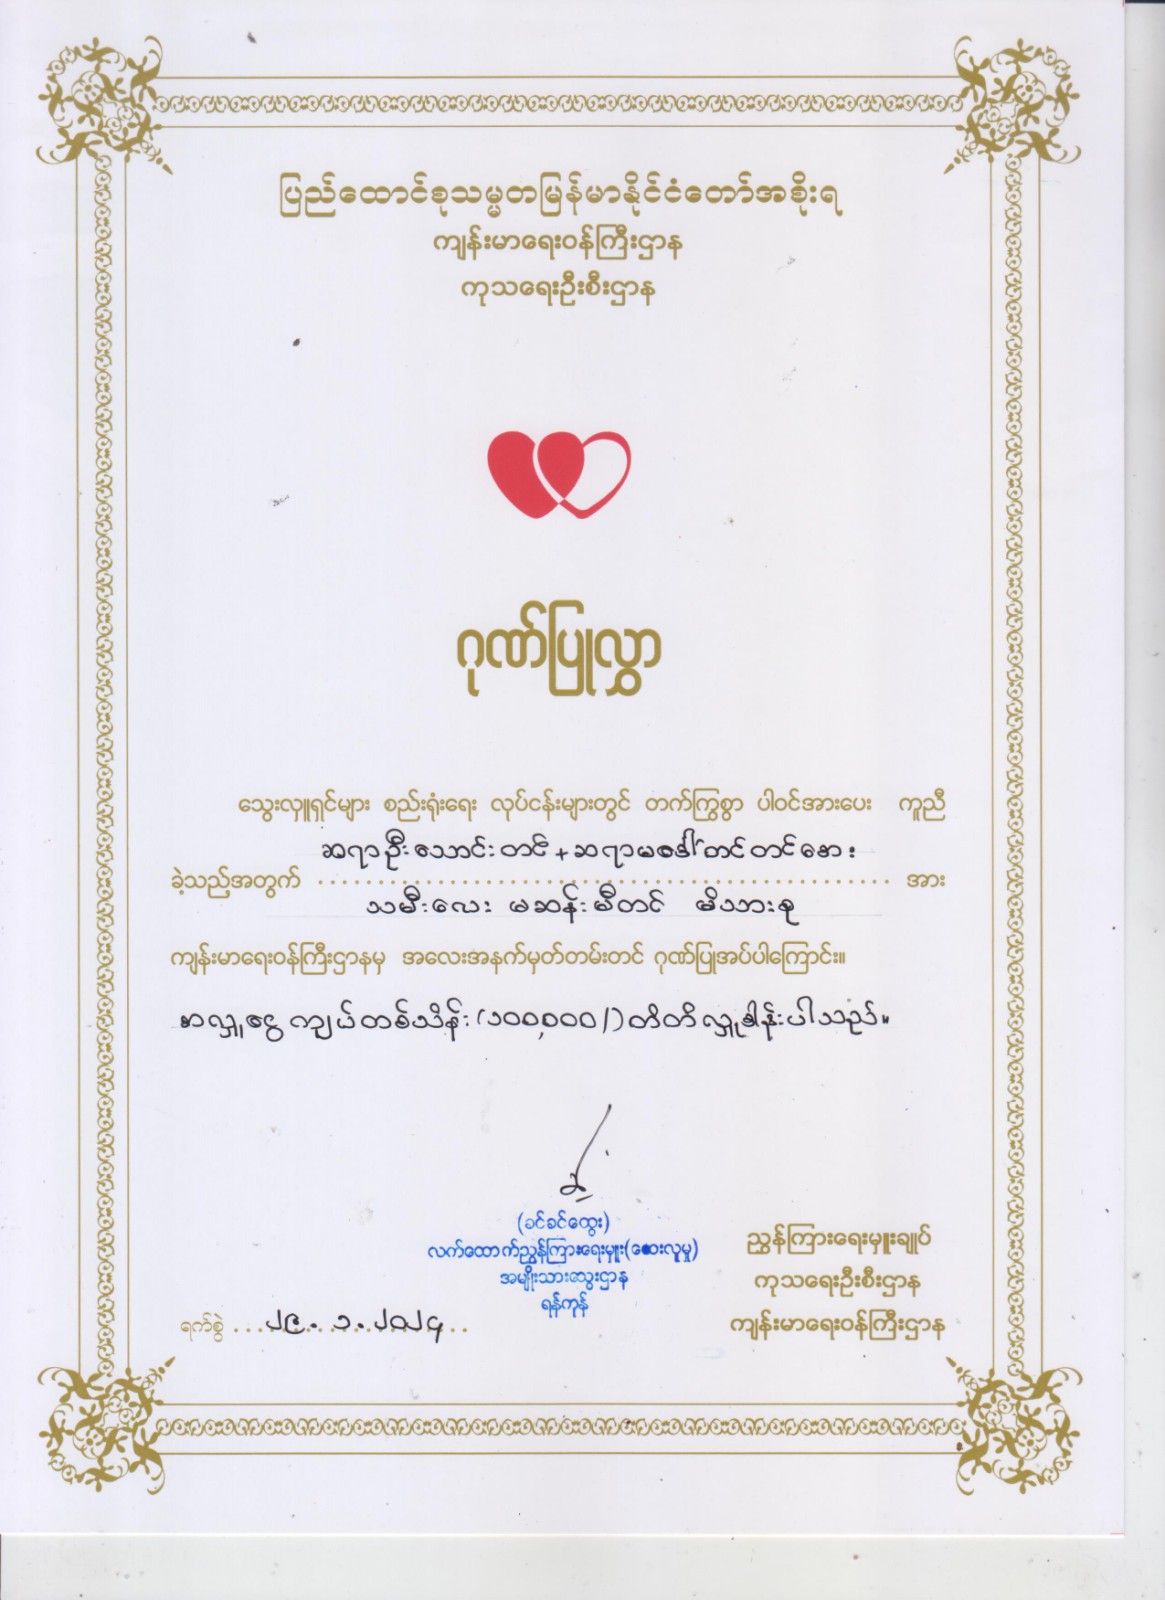 ပြည်ထောင်စုသမ္မတမြန်မာနိုင်ငံတော်အစိုးရ
ကျန်းမာရေးဝန်ကြီးဌာန
ကုသရေးဦးစီးဌာန
ဂုဏ်ပြုလွှာ
သွေးလှူရှင်များ စည်းရုံးရေး လုပ်ငန်းများတွင် တက်ကြွစွာ ပါဝင်အားပေး ကူညီ
ဆရာဦးသောင်းတင် + ဆရာမဒေါ်တင်တင်အေး
ခဲ့သည့်အတွက် အား
သမီးလေး မဆန်းမီတင် မိသားစု
ကျန်းမာရေးဝန်ကြီးဌာနမှ အလေးအနက်မှတ်တမ်းတင် ဂုဏ်ပြုအပ်ပါကြောင်း။
အလှူငွေ ကျပ်တစ်သိန်း (၁၀၀,၀၀၀/) တိတိ လှူဒါန်းပါသည်။
(ခင်ခင်ထွေး)
လက်ထောက်ညွှန်ကြားရေးမှူး(ဆေးလူမှု)
အမျိုးသားသွေးဌာန
ရန်ကုန်
ညွှန်ကြားရေးမှူးချုပ်
ကုသရေးဦးစီးဌာန
ကျန်းမာရေးဝန်ကြီးဌာန
ရက်စွဲ ၂၉.၁.၂၀၂၄